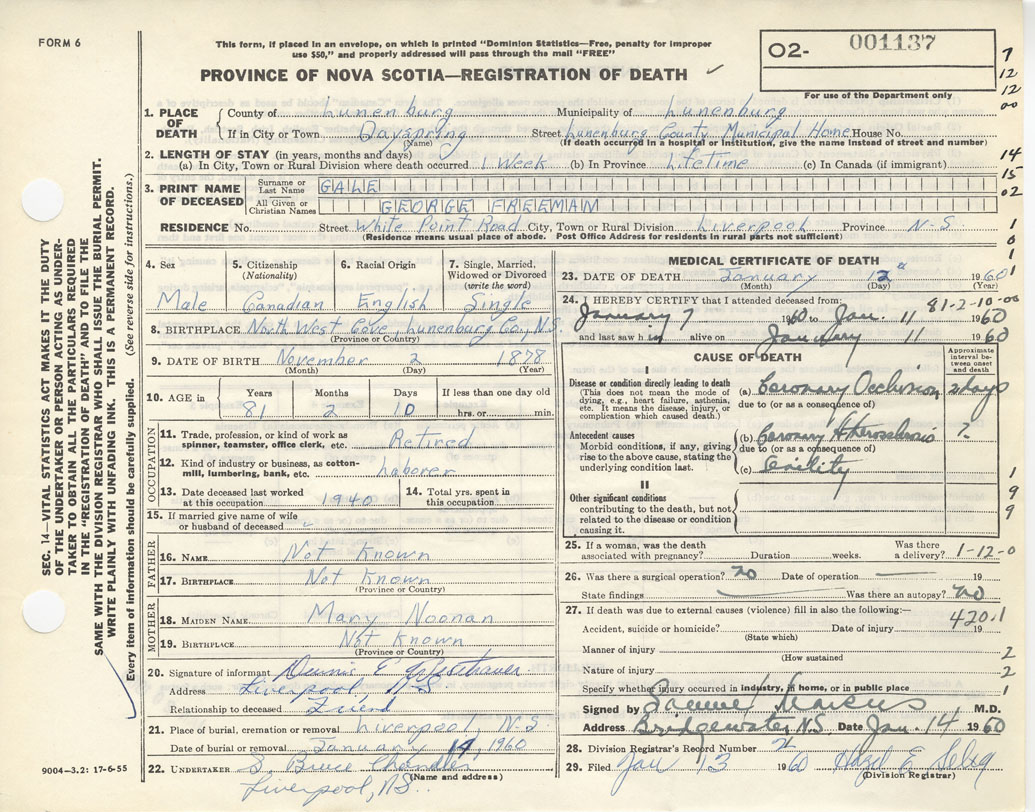 FORM 6
This form, if placed in an envelope, on which is printed "Dominion Statistics—Free, penalty for improper
use $50," and properly addressed will pass through the mail "FREE"
O2- 001137
For use of the Department only
PROVINCE OF NOVA SCOTIA—REGISTRATION OF DEATH
7
12
12
00
1. PLACE OF DEATH
County of Lunenburg Municipality of Lunenburg
If in City or Town Dayspring Street Lunenburg County Municipal Home House No.
(Name) (If death occurred in a hospital or institution, give the name instead of street and number)
2. LENGTH OF STAY (in years, months and days)
(a) In City, Town or Rural Division where death occurred 1 Week (b) In Province Lifetime (c) In Canada (if immigrant)
14
15
02
3. PRINT NAME OF DECEASED
Surname or Last Name GALE
All Given or Christian Names GEORGE FREEMAN
RESIDENCE No. Street White Point Road City, Town or Rural Division Liverpool Province N-S
(Residence means usual place of abode. Post Office Address for residents in rural parts not sufficient)
4. Sex Male
5. Citizenship (Nationality) Canadian
6. Racial Origin English
7. Single, Married, Widowed or Divorced (write the word) Single
8. BIRTHPLACE North West Cove, Lunenburg Co., N.S.
(Province or Country)
9. DATE OF BIRTH November 2 1878
(Month) (Day) (Year)
10. AGE in Years Months Days If less than one day old
81 2 10 hrs. or min.
OCCUPATION
11. Trade, profession, or kind of work as spinner, teamster, office clerk, etc. Retired
12. Kind of industry or business, as cotton-mill, lumbering, bank, etc. Laborer
13. Date deceased last worked at this occupation 1940
14. Total yrs. spent in this occupation
15. If married give name of wife or husband of deceased
FATHER
16. NAME Not Known
17. BIRTHPLACE Not Known
(Province or Country)
MOTHER
18. MAIDEN NAME Mary Noonan
19. BIRTHPLACE Not Known
(Province or Country)
20. Signature of informant Dennis E
Address Liverpool, N-S
Relationship to deceased Friend
21. Place of burial, cremation or removal Liverpool, N.S.
Date of burial or removal January 14, 1960
22. UNDERTAKER S. Bruce Chandler
(Name and address)
Liverpool, N.S.
MEDICAL CERTIFICATE OF DEATH
23. DATE OF DEATH January 12 1960
(Month) (Day) (Year)
24. I HEREBY CERTIFY that I attended deceased from: 81-2-10-00
January 7 1960 to Jan. 11 1960
and last saw him alive on January 11 1960
CAUSE OF DEATH
Approximate interval between onset and death
I
Disease or condition directly leading to death
(This does not mean the mode of dying, e.g., heart failure, asthenia, etc. It means the disease, injury, or complication which caused death.)
(a) Coronary Occlusion 2 days
due to (or as a consequence of)
Antecedent causes
Morbid conditions, if any, giving rise to the above cause, stating the underlying condition last.
(b) Coronary Atherosclerosis ?
due to (or as a consequence of)
(c) Senility
II
Other significant conditions
contributing to the death, but not related to the disease or condition causing it.
1
9
9
25. If a woman, was the death associated with pregnancy? Duration weeks. Was there a delivery? 1-12-0
26. Was there a surgical operation? no Date of operation 19
State findings Was there an autopsy? no
27. If death was due to external causes (violence) fill in also the following:—
420.1
Accident, suicide or homicide? Date of injury 19
(State which)
Manner of injury 2
(How sustained
Nature of injury 2
Specify whether injury occurred in industry, in home, or in public place 1
Signed by Samuel Marcus M.D.
Address Bridgewater, N.S. Date Jan. 14 1960
28. Division Registrar's Record Number 2
29. Filed Jan 13 1960 Hazel E. Selig
(Division Registrar)
SEC. 14—VITAL STATISTICS ACT MAKES IT THE DUTY
OF THE UNDERTAKER OR PERSON ACTING AS UNDER-
TAKER TO OBTAIN ALL THE PARTICULARS REQUIRED
IN THE "REGISTRATION OF DEATH" AND TO FILE THE
SAME WITH THE DIVISION REGISTRAR WHO SHALL ISSUE THE BURIAL PERMIT.
WRITE PLAINLY WITH UNFADING INK. THIS IS A PERMANENT RECORD.
Every item of information should be carefully supplied. (See reverse side for instructions.)
9004—3.2: 17-6-55